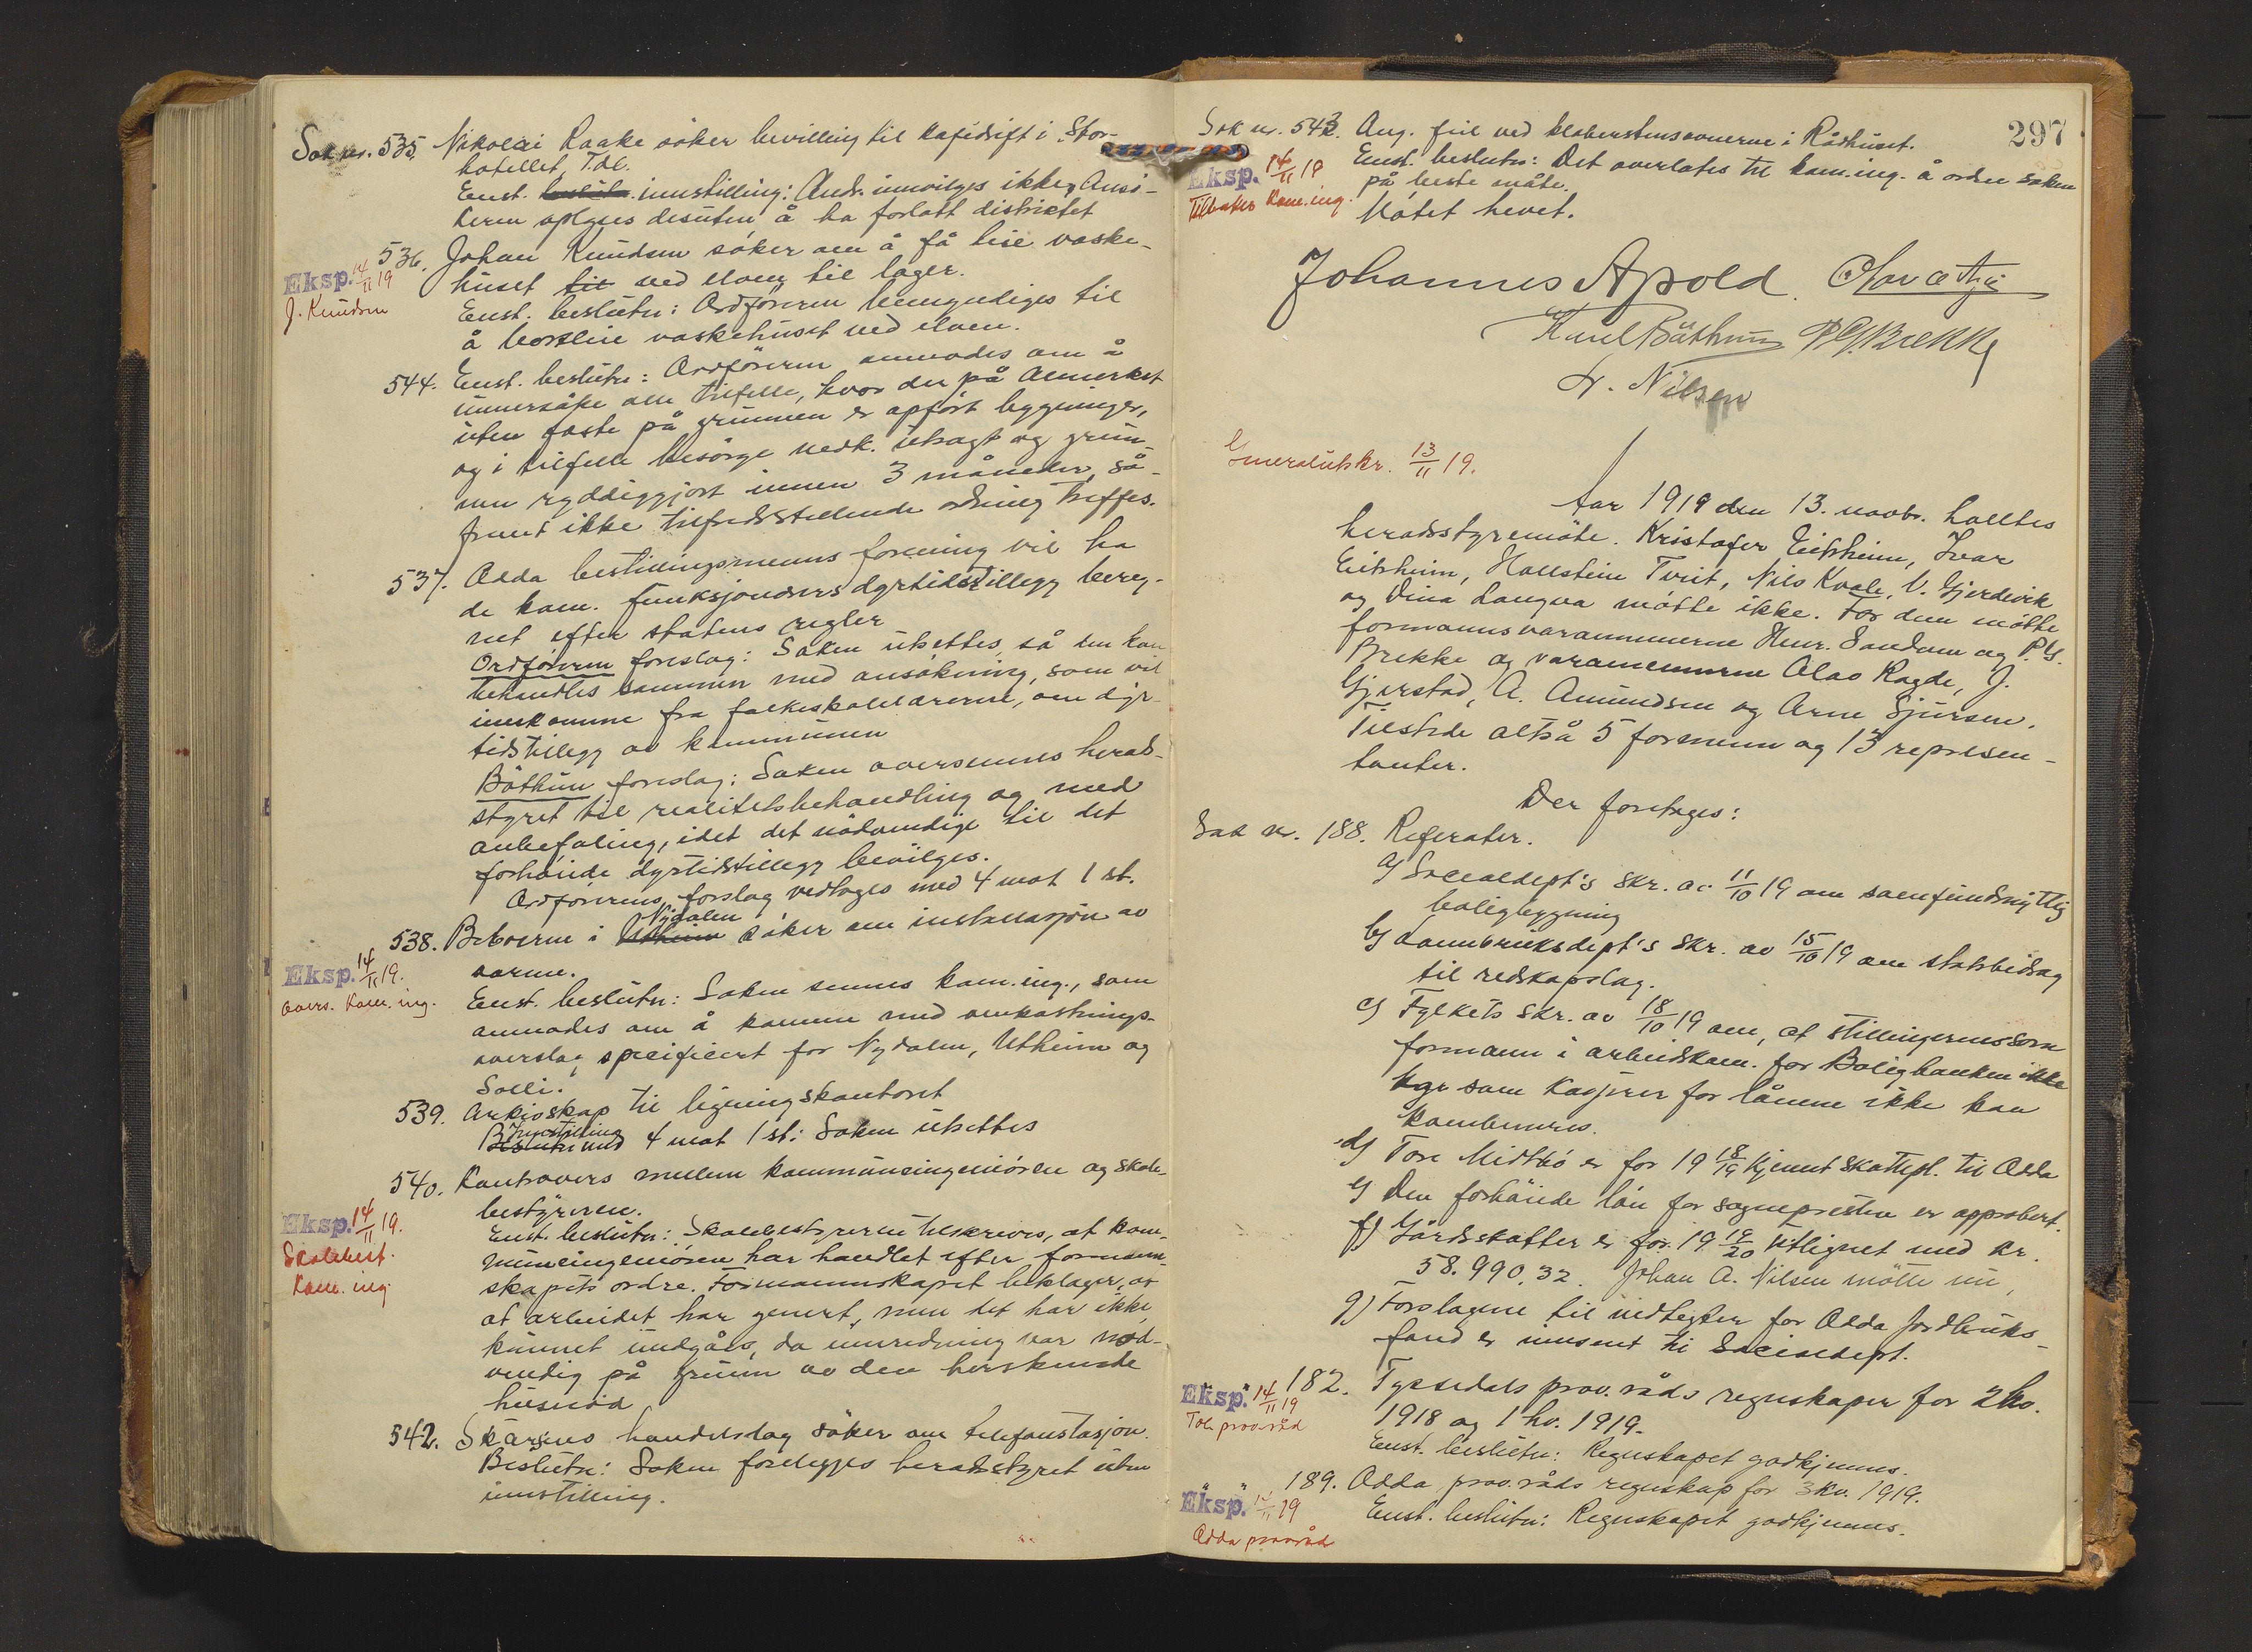 Sak nr. 535. Nikolai Raake söker bevilling til kafédrift i Stor-
hotellet, Tdl.
Enst. beslutn. innstilling: Andr. innvilges ikke. Ansö-
keren oplyses desuten å ha forlatt distriktet
536. Johan Knudsen söker om å få leie vaske-
Eksp. 14/11 19
J. Knudsen
huset til ved elven til lager.
Enst. beslutn: Ordföreren bemyndiges til
å bortleie vaskehuset ved elven.
544. Enst. beslutn: Ordföreren anmodes om å
unnersöke alle tilfelle, hvor der på Almerket
uten feste på grunnen er opfört bygninger,
og i tilfelle besörge nedk. utragt og grun-
nen ryddiggjort innen 3 måneder, så-
fremt ikke tilfredsstillende ordning treffes.
537. Odda bestillingsmenns forening vil ha
de kom. funksjonærers dyrtidstillegg bereg-
net efter statens regler
Ordföreren foreslog: Saken utsettes, så den kan
behandles sammen med ansökning, som vil
innkomme fra folkeskolelærerne, om dyr-
tidstillegg av kommunen
Båthun foreslog: Saken oversennes herads-
styret til realitetsbehandling og med
anbefaling, idet det nödvendige til det
forhöiede dyrtidstillegg bevilges.
Ordförerens forslag vedtages med 4 mot 1 st.
538. Beboerne i Utheim Nydalen söker om installasjon av
Eksp. 14/11 19.
overs. Kom. ing.
varme.
Enst. beslutn: Saken sennes kom.ing., som
anmodes om å komme med omkostnings-
overslag, specificert for Nydalen, Utheim og
Solli.
539. Arkivskap til ligningskontoret
Beslutn Innstilling med 4 mot 1 st: Saken utsettes
540. Kontrovers mellem kommuneingeniören og skole-
bestyreren.
Eksp. 14/11 19.
Skolebest.
Kom. ing
Enst. beslutn: Skolebestyreren tilskrives, at kom-
muneingeniören har handlet efter formann-
skapets ordre. Formannskapet beklager,
at arbeidet har genert, men det har ikke
kunnet undgåes, da innredning var nöd-
vendig på grunn av den herskende
husnöd
542. Skarsmo handelslag söker om telefonstasjon.
Beslutn: Saken forelegges heradsstyret uten
innstilling.
297
Sak nr. 543. Ang. feil ved kleberstensovnerne i Rådhuset.
Eksp. 14/11 19
Tilbakes Kom.ing.
Enst. beslutn: Det overlates til kom.ing. å ordne saken
på beste måte.
Mötet hevet.
Johannes Apold. Olav Aga
Karl Båthun P G Brekke
N. Nilsen
Generalutskr. 13/11 19.
Aar 1919 den 13. novbr. holltes
heradsstyremöte. Kristofer Eitrheim, Ivar
Eitrheim, Hallstein Tveit, Nils Kvale, V. Gjerdevik
og Dina Langva mötte ikke. For dem mötte
formannsvaramennerne Henr. Sandom og P.G.
Brekke og varamennerne Olav Ragde, J.
Gjerstad, A. Amundsen og Arne Sjursen.
Tilstede altså 5 formenn og 13 represen-
tanter.
Der foretages:
Sak nr. 188. Referater.
a) Socialdept's skr. av 11/10 19 om samfundsnyttig
boligbygning
b) Lannbruksdept's skr. av 15/10 19 om statsbidrag
til redskapslag.
c) Fylkets skr. av 18/10 19 om, at stillingerne som
formann i arbeidskom. for Boligbanken ikke
og som Kasjerer for lånene ikke kan
kombineres.
d) Tore Midtbö er for 19 18/19 kjennt skattepl. til Odda
e) Den forhöiede lön for sogneprestene er approbert.
f) Gårdsskatter er for 19 19/20 utlignet med kr.
58.990.32. Johan A. Nilsen mötte nu,
g) Forslagene til vedtegter for Odda Jordbruks-
fond er innsent til Socialdept.
182. Tyssedals prov.råds regnskaper for 2 hv.
Eksp. 14/11 19
Tdl. prov.råd
1918 og 1 hv. 1919.
Enst. beslutn: Regnskapet godkjennes.
189. Odda prov.råds regnskap for 3 kv. 1919.
Eksp. 14/11 19
Odda provråd
Enst. beslutn: Regnskapet godkjennes.